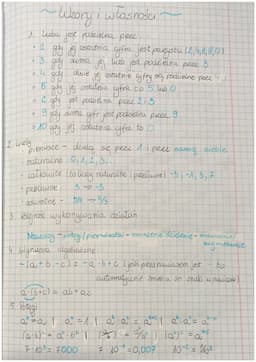 ~ Wzory i własności ~
1. Liczba jest podzielna przez
• 2 gdy jej ostatnia cyfra jest parzysta (2,4,6,8,0)
• 3 gdy suma jej cyfr jest podzielna przez 3
• 4 gdy dwie jej ostatnie cyfry są podzielne przez 4
• 5 gdy jej ostatnia cyfra to 5 lub 0
• 6 gdy jest podzielna przez 2 i 3
• 9 gdy suma cyfr jest podzielna przez 9
• 10 gdy jej ostatnia cyfra to 0
2. Liczby
pierwsze - dzielą się przez 1 i przez samą siebie
naturalne 0, 1, 2, 3..
całkowite (to liczby naturalne i przeciwne) -3, -1, 5, 7
- przeciwne 3 → -3
- odwrotne -
3. Kolejność wykonywania działań
Nawiasy - potęgi i pierwiastki - mnożenie dzielenie - dodawanie
odejmowanie
4. Wyrażenia algebraiczne
-(a+b-c) = -a-b+c (jeśli przed nawiasem jest - to
automatycznie zmienia się znaki w nawiasie)
a·(b+c) = ab+ac
5. Potęgi
7·10³ = 7000 7·10⁻³ = 0,007